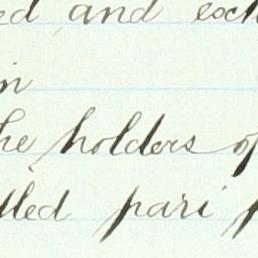 ed and exch
in
he holders of
lled pari p